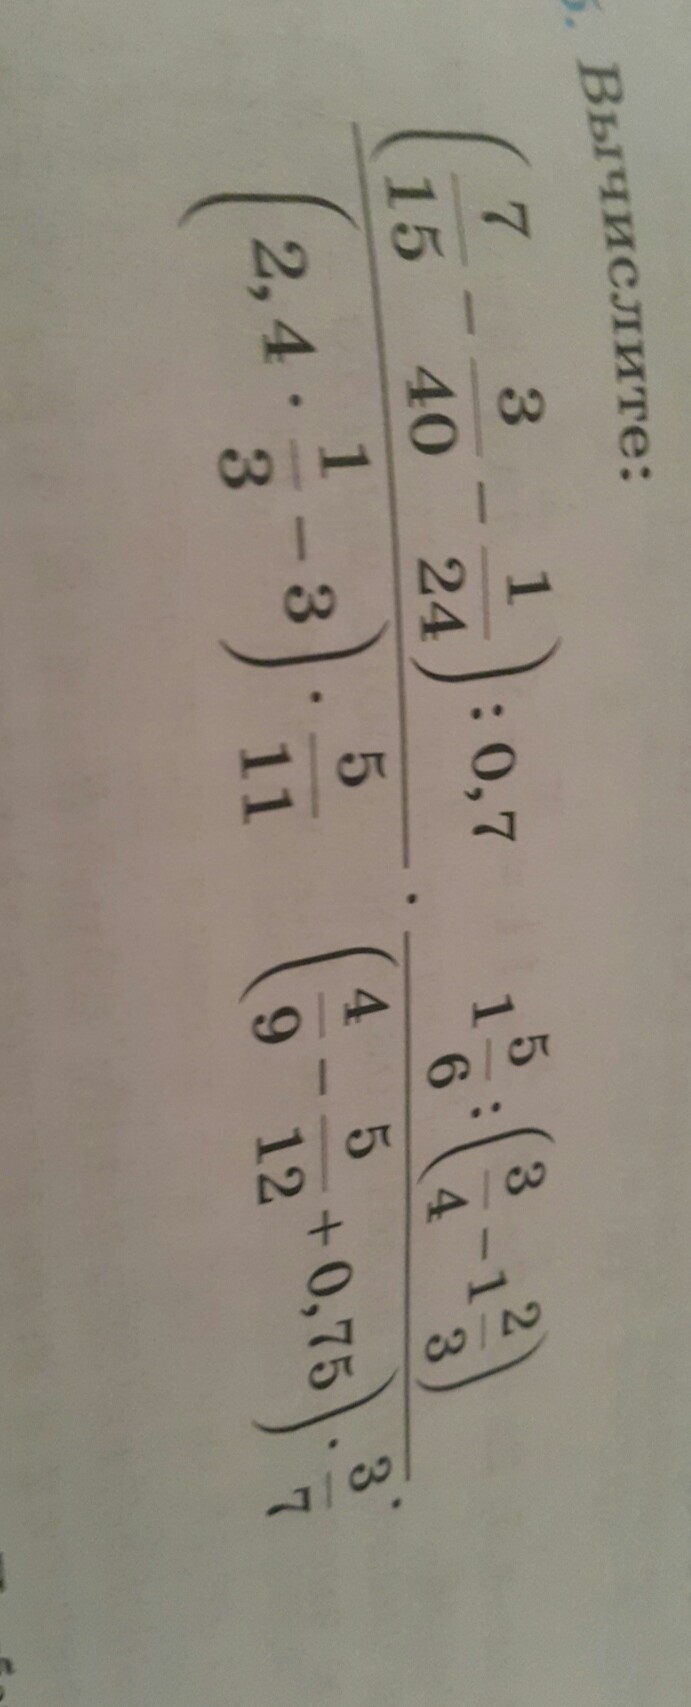 Вычислите:
(7/15 - 3/40 - 1/24) : 0,7 / (2,4 · 1/3 - 3) · 5/11 · 1 5/6 : (3/4 - 1 2/3) / (4/9 - 5/12 + 0,75) · 3/7.